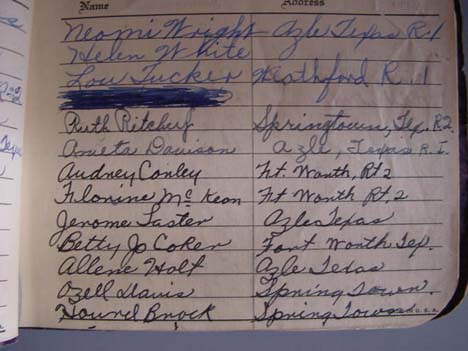 Name Address
Neomi Wright Azle Texas R.1
Helen White
Lou Tucker Weathford R. 1
Ruth Ritchey Springtown, Tex. R2.
Aneta Davison Azle, Texas R.I.
Audney Conley Ft. Worth, Rt 2
Florine Mc Keon Ft Worth Rt, 2
Jerome Taster Azle Texas
Betty Jo Coker Fort Worth Tex.
Allene Holt Azle Texas
Ozell Davis Spring Town.
Hound Brock Spring Town